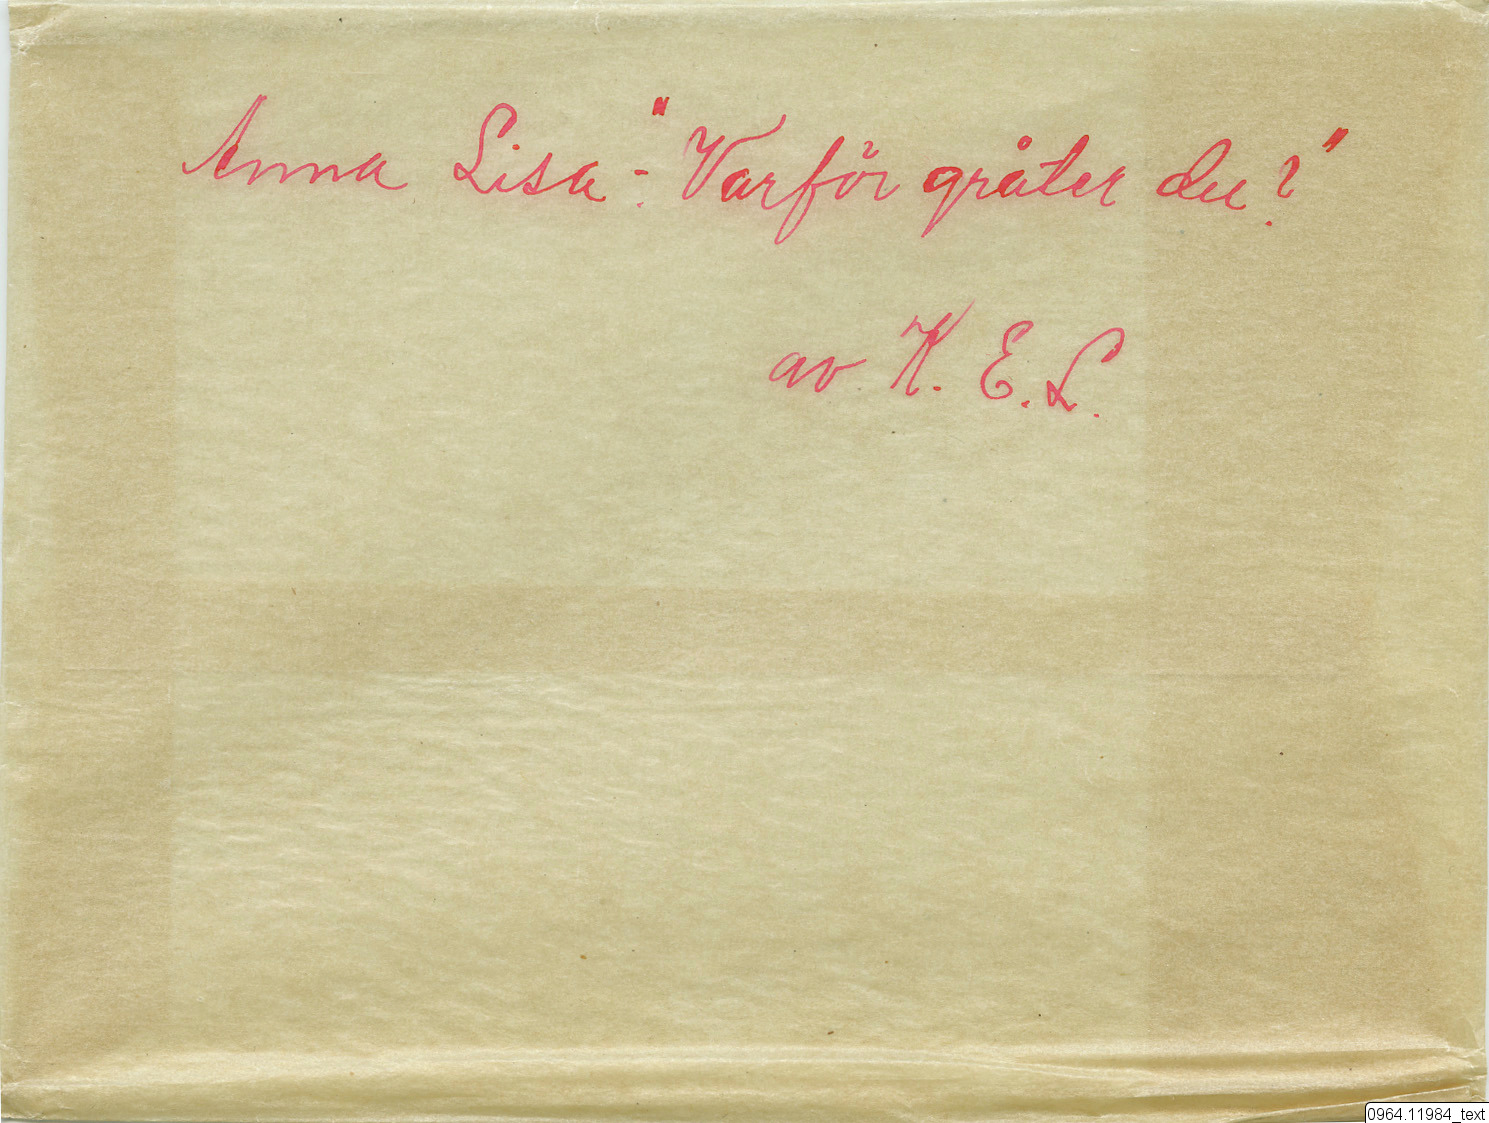 Anna Lisa - "Varför gråter du?"
av K. E. L.
0964.11984_text